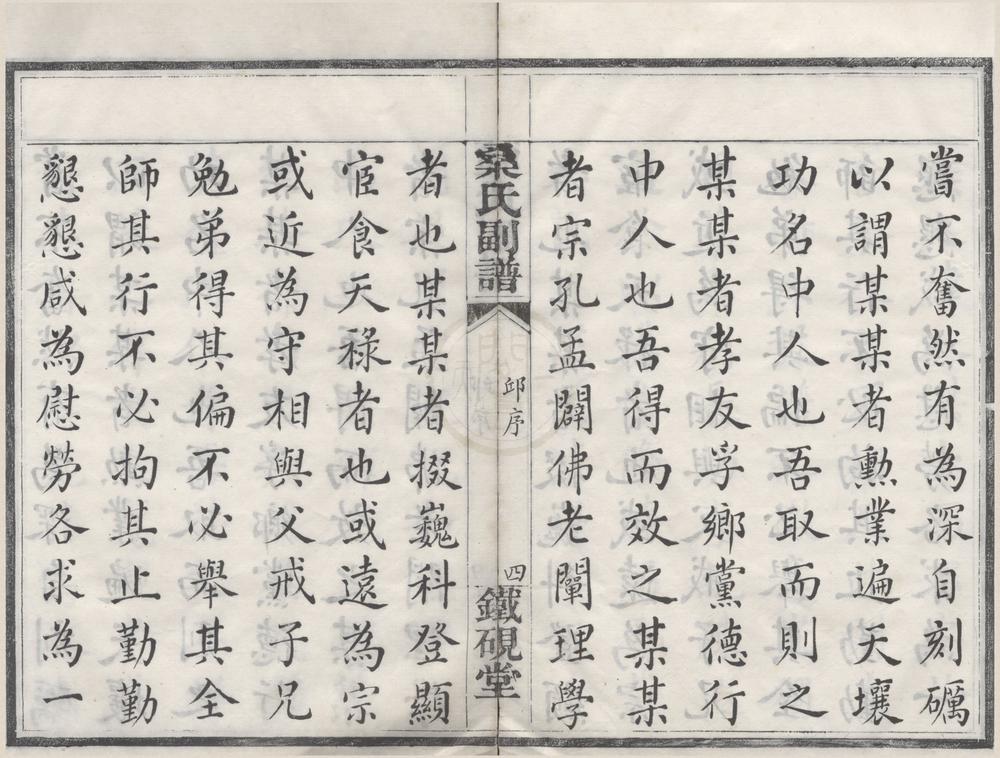 嘗不奮然有為深自刻礪
以謂某某者勳業遍天壤
功名中人也吾取而則之
某某者孝友孚鄉黨德行
中人也吾得而效之某某
者宗孔孟闢佛老闡理學
桑氏副譜
邱序
四
鐵硯堂
者也某某者掇巍科登顯
宦食天祿者也或遠為宗
或近為守相與父戒子兄
勉弟得其偏不必舉其全
師其行不必拘其止勤勤
懇懇咸為慰勞各求為一